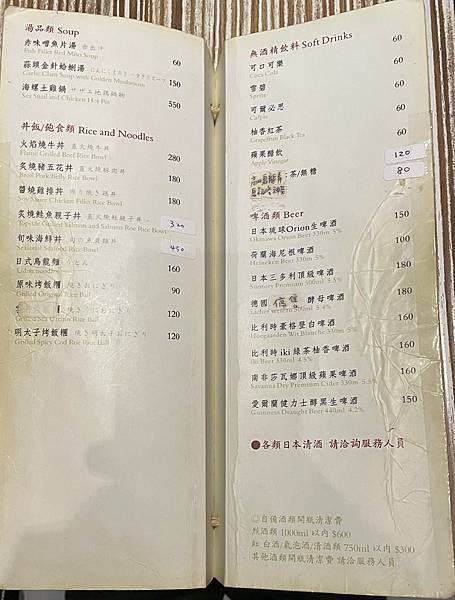 湯品類 Soup
赤味噌魚片湯 赤出汁
Fish Fillet Red Miso Soup 60
蒜頭金針蛤蜊湯
Garlic Clam Soup with Golden Mushrooms 150
海螺土雞鍋 サザエ地鶏鍋物
Sea Snail and Chicken Hot Pot 550
丼飯/飽食類 Rice and Noodles
火焰燒牛丼 直火燒牛丼
Flame Grilled Beef Rice Bowl 280
炙燒豬五花丼
Broil Pork Belly Rice Bowl 180
醬燒雞排丼
Soy Sauce Chicken Fillet Rice Bowl 180
炙燒鮭魚親子丼
Topside Grilled Salmon and Salmon Roe Rice Bowl 320
旬味海鮮丼 旬の魚貝類丼
Seasonal Seafood Rice Bowl 450
日式烏龍麵 うどん
Udon noodles 160
原味烤飯糰 焼きおにぎり
Grilled Original Rice Ball 90
焼きおにぎり
Rice Ball 120
明太子烤飯糰 焼き明太子おにぎり
Grilled Spicy Cod Roe Rice Ball 120
無酒精飲料 Soft Drinks
可口可樂 60
Coca Cola
雪碧 60
Sprite
可爾必思 60
Calpis
柚香紅茶 60
Grapefruit Black Tea
蘋果醋飲 120
Apple Vinegar
茶/無糖 80
啤酒類 Beer
日本琉球Orion生啤酒 150
Okinawa Orion Beer 330m 5%
荷蘭海尼根啤酒 100
Heineken Beer 330m 5%
日本三多利頂級啤酒 180
Suntory Premium 300ml 5.5%
德國 酵母啤酒 180
Licher weizen 500ml 5.4%
比利時豪格登白啤酒 160
Hoegaarden Wit Blanche 330m 5%
比利時iki綠茶柚香啤酒 160
Iki Beer 330ml 4.5%
南非莎瓦娜頂級蘋果啤酒 160
Savanna Dry Premium Cider 330m 5.5%
愛爾蘭健力士醇黑生啤酒 150
Guinness Draught Beer 440ml 4.2%
●各類日本清酒 請洽詢服務人員
◎自備酒類開瓶清潔費
烈酒類 1000ml 以內 $600
紅.白酒/氣泡酒/清酒類 750ml 以內 $300
其他酒類開瓶清潔費 請洽服務人員